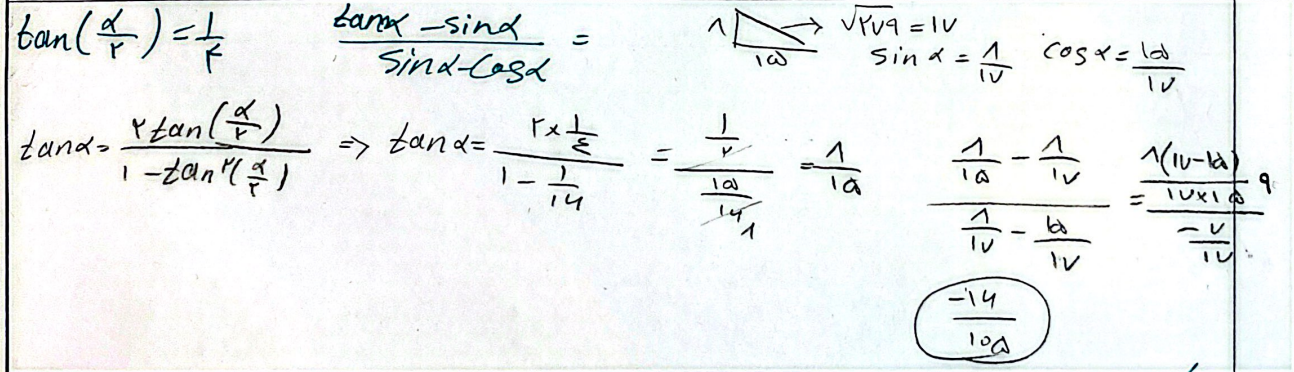 tan(α/۲) = ۱/۴    (tanα - sinα)/(sinα - cosα) =    ۸    ۱۵    → √۲۸۹ = ۱۷
sinα = ۸/۱۷    cosα = ۱۵/۱۷
tanα = ۲tan(α/۲)/(۱ - tan²(α/۲)) ⇒ tanα = (۲×۱/۴)/(۱ - ۱/۱۶) = (۱/۲)/(۱۵/۱۶) ۸ = ۸/۱۵    (۸/۱۵ - ۸/۱۷)/(۸/۱۷ - ۱۵/۱۷) = (۸(۱۷-۱۵)/(۱۷×۱۵))/(-۷/۱۷)
-۱۶/۱۰۵